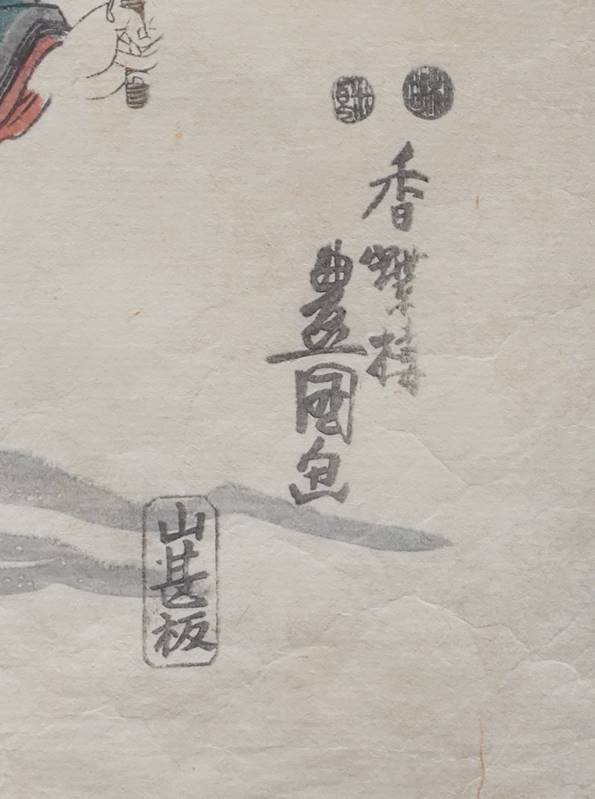 香蝶楼
豊國画
山甚板